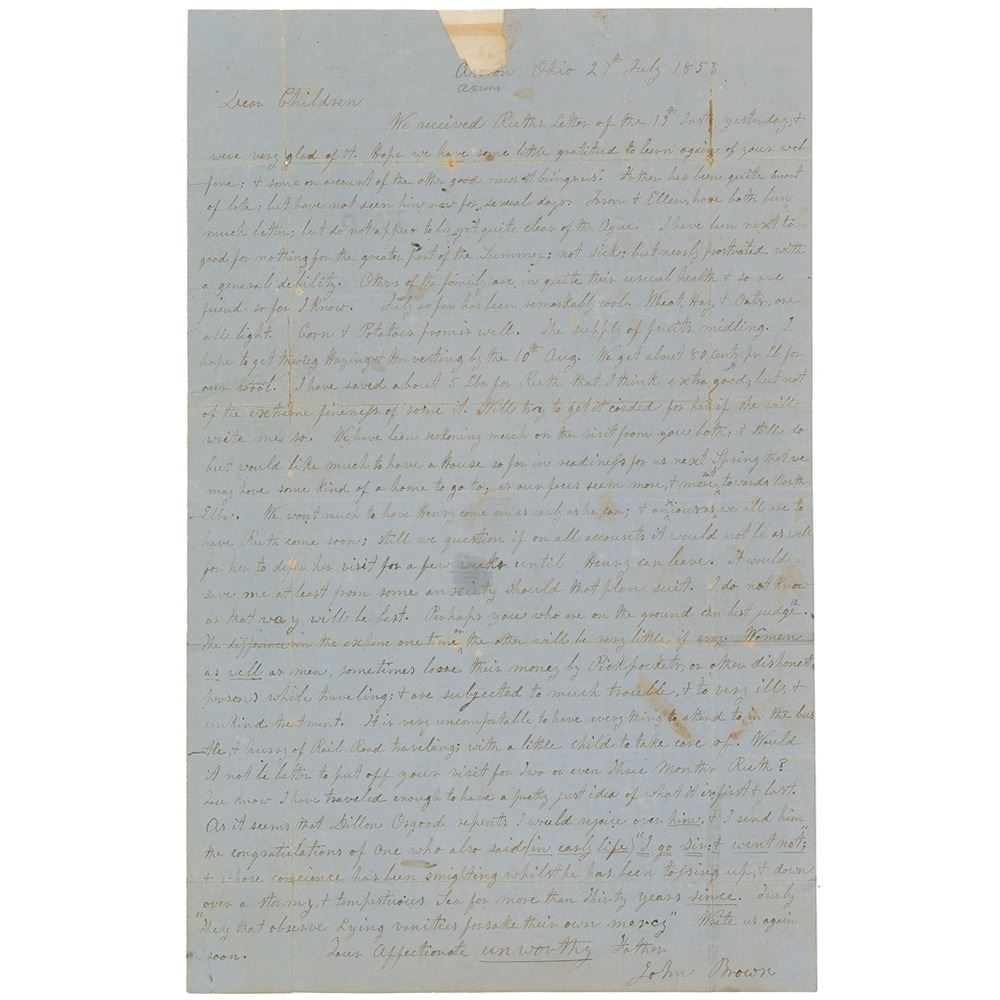 Akron Ohio 27th July 1853
Akron
Dear Children
We received Ruths Letter of the 19th Inst. yesterday; &
were very glad of it. Hope we have some little gratitude to learn again of your wel
fare; & some on account of the other good news it brings us. Father has been quite smart
of late; but have not seen him now for several days. Jason & Ellen, have both been
much better; but do not appear to get quite clear of the Ague. I have been next to
good for nothing for the greater part of the Summer; not sick; but nearly prostrated with
a general debility. Others of the family are, in quite their usual health & so are
friend so far I know. July so far has been remarkably cool. Wheat, Hay, & Oats, are
all light. Corn & Potatoes promis well. The supply of fruits midling. I
hope to get through Haying & Harvesting by the 10th Aug. We get about 80 cents pr Lb for
our wool. I have saved about 5 Lbs for Ruth that I think extra good; but not
of the extreme fineness of some it. Will try to get it carded for her if she will
write me so. We have been reckoning much on the visit from you both; & still do
but would like much to have a House so far in readiness for us next Spring that we
may have some kind of a home to go to; as our faces seem more, & more set, towards North
Elba. We want much to have Henry come on as early as he can; & anxious as we all are to
have Ruth come soon; still we question if on all accounts it would not be as well
for her to defer her visit for a few weeks until Henry can leave. It would
save me at least from some anxiety should that plan suit. I do not know
as that way will be best. Perhaps you who are on the ground can best judge.
The difference in the expense one time or the other will be very little if any. Women
as well as men, sometimes loose their money by Pickpockets, or other dishonest
persons while traveling; & are subjected to much trouble, & to very ill, &
unkind treatment. It is very uncomfortable to have every thing to attend to, in the bus
tle, & hurry of Rail Road traveling; with a little child to take care of. Would
it not be better to put off your visit for Two or even Three Months Ruth?
You know I have traveled enough to have a pretty just idea of what it is first & last.
As it seems that Dillon Osgood repents I would rejoice over him; & I send him
the congratulations of one who also said (in early life) "I go sir: & went not";
& whose conscience has been smighting whilst he has been tossing up, & down
over a stormy, & tempestuous Sea for more than Thirty years since. Truly
"They that observe Lying vanities forsake their own mercy" Write us again
soon. Your Affectionate unworthy Father
John Brown